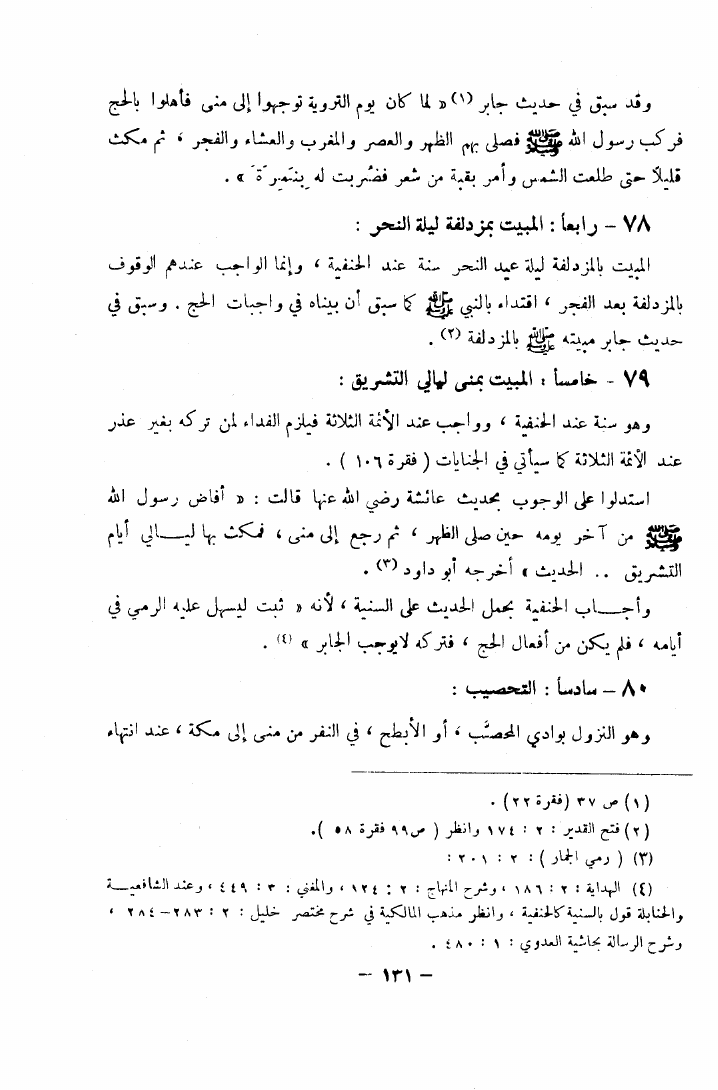 وقد سبق في حديث جابر (١) « لما كان يوم التروية توجهوا إلى منى فأهلوا بالحج
فركب رسول الله ﷺ فصلى بهم الظهر والعصر والمغرب والعشاء والفجر ، ثم مكث
قليلاً حتى طلعت الشمس وأمر بقبة من شعر فضُربت له بِنَمِرَة » .
٧٨ – رابعاً : المبيت بمزدلفة ليلة النحر :
المبيت بالمزدلفة ليلة عيد النحر سنة عند الحنفية ، وإنما الواجب عندهم الوقوف
بالمزدلفة بعد الفجر ، اقتداء بالنبي ﷺ كما سبق أن بيناه في واجبات الحج . وسبق في
حديث جابر مبيته ﷺ بالمزدلفة (٢) .
٧٩ - خامساً : المبيت بمنى ليالي التشريق :
وهو سنة عند الحنفية ، وواجب عند الأئمة الثلاثة فيلزم الفداء لمن تركه بغير عذر
عند الأئمة الثلاثة كما سيأتي في الجنايات ( فقرة ١٠٦ ) .
استدلوا على الوجوب بحديث عائشة رضي الله عنها قالت : « أفاض رسول الله
ﷺ من آخر يومه حين صلى الظهر ، ثم رجع إلى منى ، فمكث بها ليـــالي أيام
التشريق .. الحديث » أخرجه أبو داود (٣) .
وأجـــاب الحنفية بحمل الحديث على السنية ، لأنه « ثبت ليسهل عليه الرمي في
أيامه ، فلم يكن من أفعال الحج ، فتركه لايوجب الجابر » (٤) .
٨٠ – سادساً : التحصيب :
وهو النزول بوادي المحصَّب ، أو الأبطح ، في النفر من منى إلى مكة ، عند انتهاء
(١) ص ٣٧ (فقرة ٢٢) .
(٢) فتح القدير : ٢ : ١٧٤ وانظر ( ص٩٩ فقرة ٥٨ ).
(٣) ( رمي الجمار ) : ٢ : ٢٠١ :
(٤) الهداية : ٢ : ١٨٦ ، وشرح المنهاج : ٢ : ١٢٤ ، والمغني : ٣ : ٤٤٩ ، وعند الشافعيـــة
والحنابلة قول بالسنية كالحنفية ، وانظر مذهب المالكية في شرح مختصر خليل : ٢ : ٢٨٣–٢٨٤ ،
وشرح الرسالة بحاشية العدوي : ١ : ٤٨٠ .
– ١٣١ –